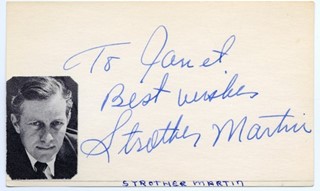 To Janet
Best wishes
Strother Martin
STROTHER MARTIN